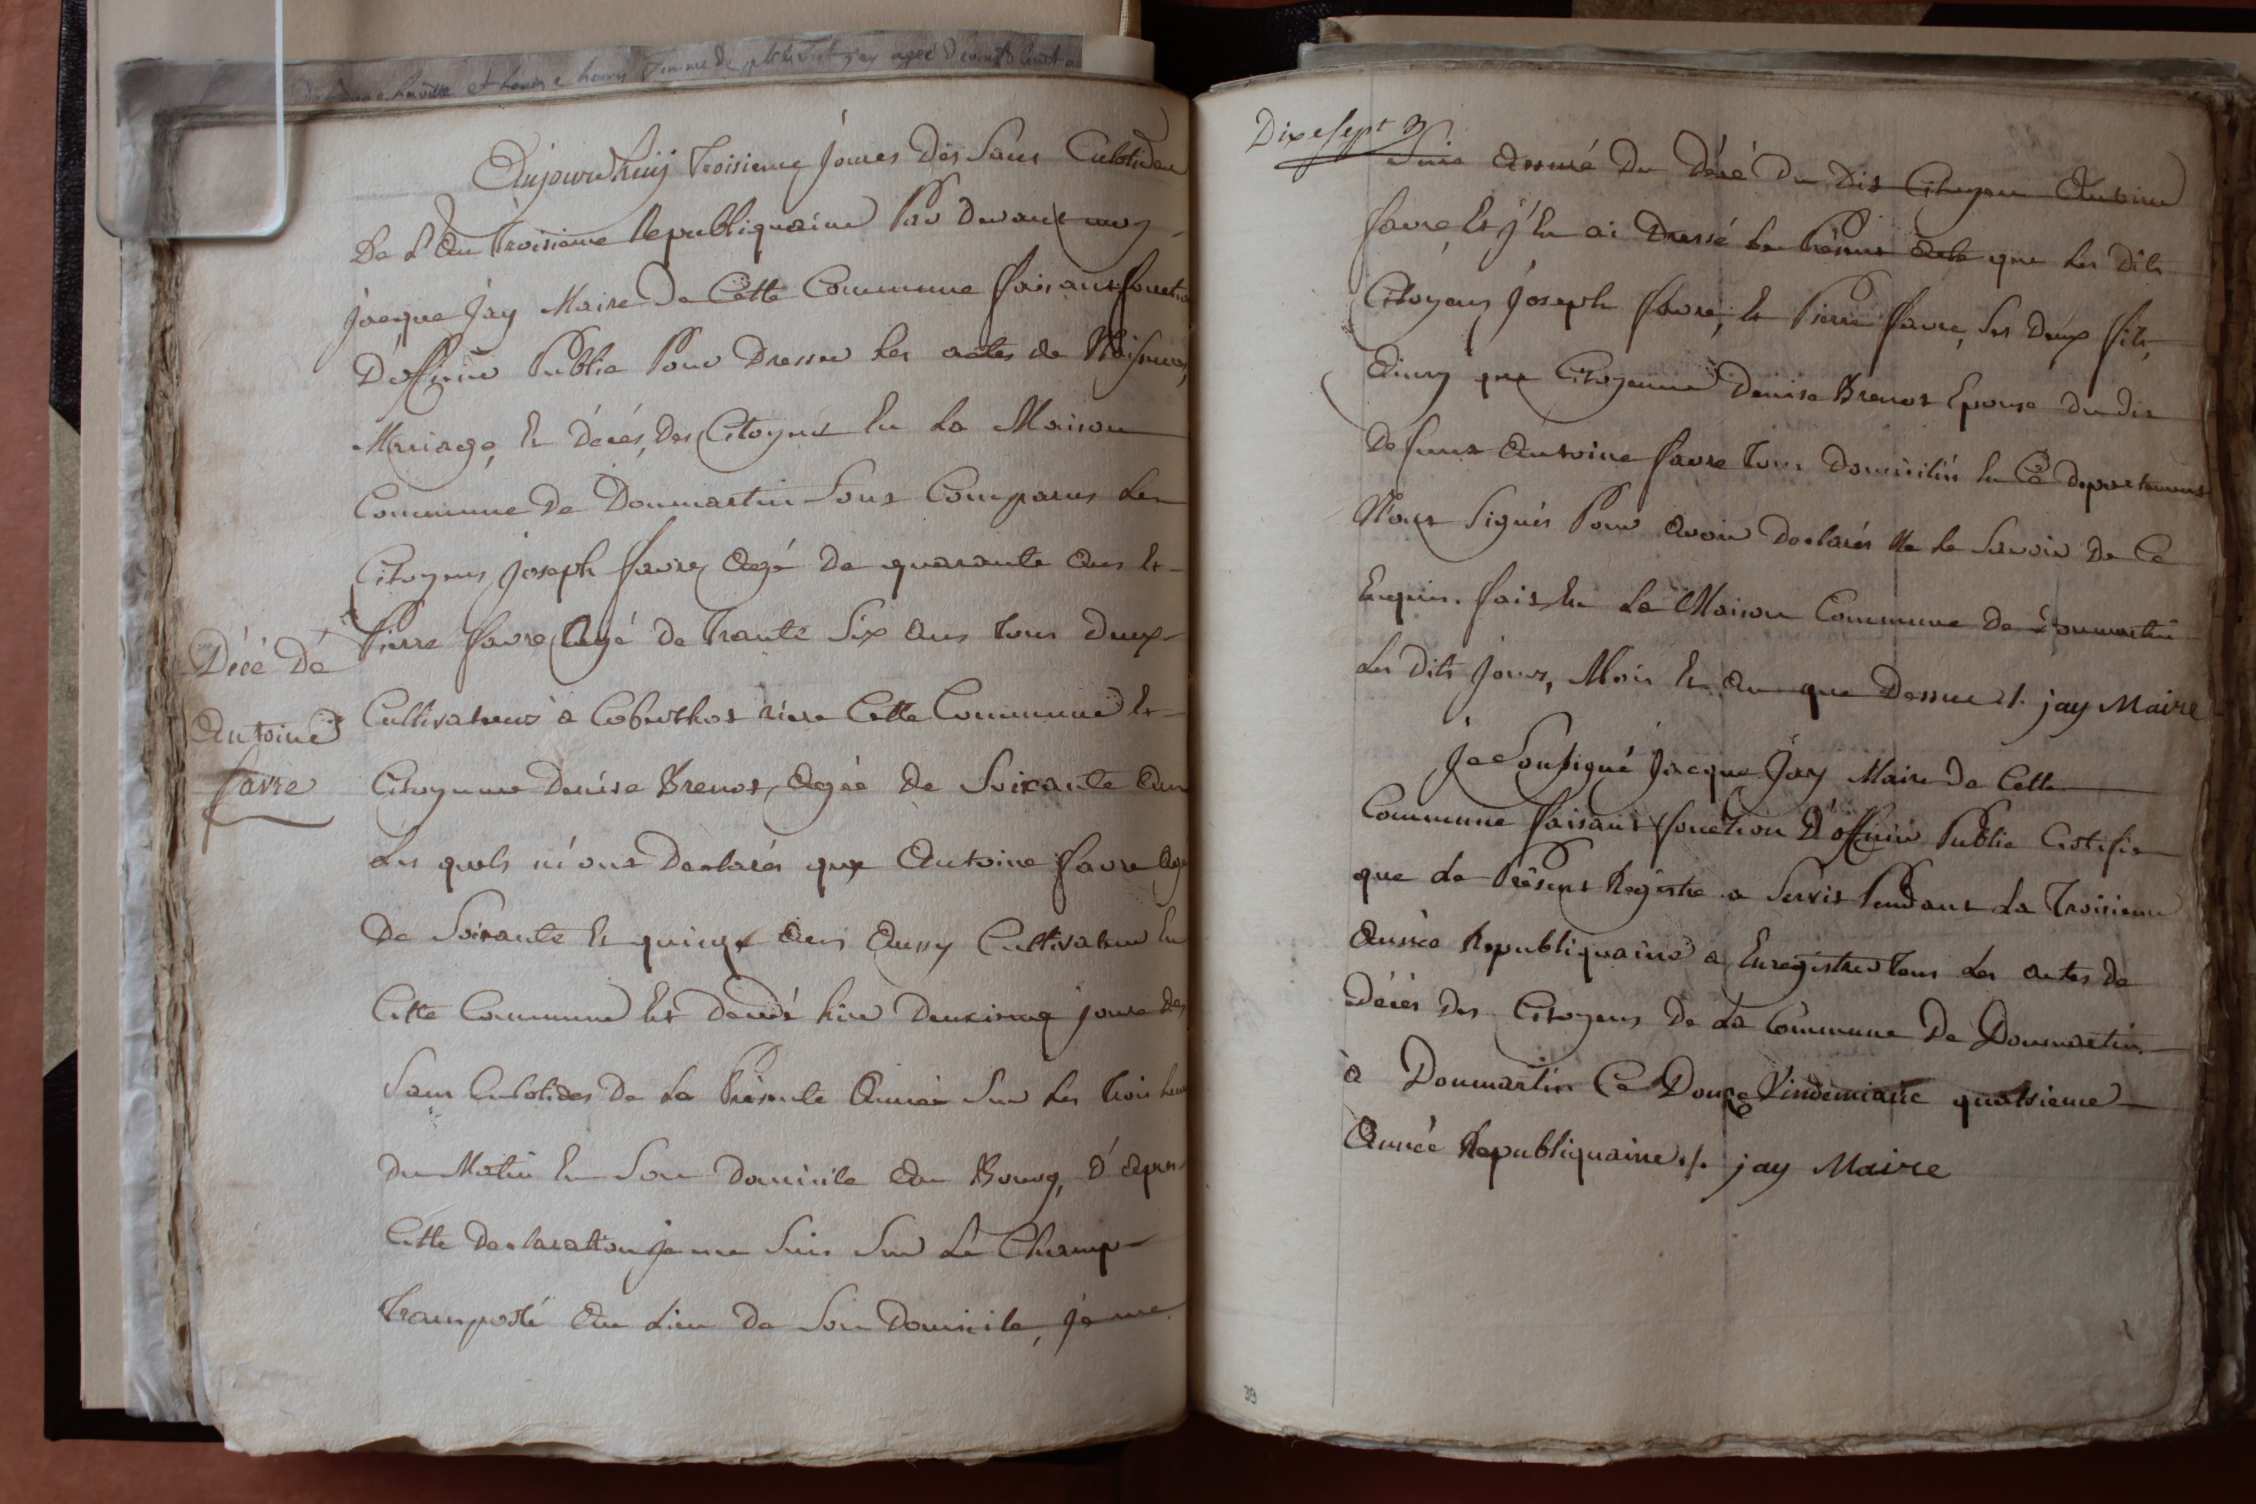 Aujourdhuij Troisieme Jours des Sans Culotides
De L'An Troisieme Republiquaine Par devant moy
jacque Jay Maire De Cette Commune faisant fonction
D'officier Public Pour Dresser Les actes de Naissances,
Mariage, Et décés, Des Citoyens En La Maison
Commune De Dommartin Sont Comparus Les
Citoyens Joseph favre Agé De quarante Ans Et
Pierre favre Agé de Trante Six Ans tous deux
Cultivateurs à riere Cette Commune Et
Citoyenne Denise Brenot, Agée De Soixante Ans
Les quels m'ont Declarés que Antoine favre Agé
De Soixante Et quinze Ans Aussy Cultivateur En
Cette Commune Est decedé hier Deuxieme jours des
Sans Culotides De La Présente Année Sur Les Trois heures
Du Matin En Son Domicile Au Bourg, D'apres
Cette Declaration je me Suis Sur Le Champ
Transporté Au Lieu De Son Domicile, je me
Décé Dé
Antoine
favre
Dix e sept
Suis Assuré Du Décé Du Dit Citoyen Antoine
favre Et j'En ai Dressé Le Présent Acte que Les Dits
Citoyens Joseph favre, Et Pierre favre, Ses Deux fils,
Ainsy que Citoyenne Denise Brenot Epouse Du dit
Defunt Antoine favre Tous Domiciliés En Ce departement
N'ont Signés Pour Avoir Declarés Ne Le Savoir De Ce
Enquis. fait En La Maison Commune De Dommartin
Les Dits Jours, Mois Et An que Dessus ./. jay Maire
Je Soussigné Jacque Jay Maire De Cette
Commune faisant fonction D'officier Public Certifie
que Le Présent Registre a Servit Pendant La Troisieme
Année Republiquaine a Enregistrer Tous Les Actes De
Décés Des Citoyens De La Commune De Dommartin
à Dommartin Ce Douze Vindemiaire quatrieme
Année Republiquaine ./. jay Maire
39